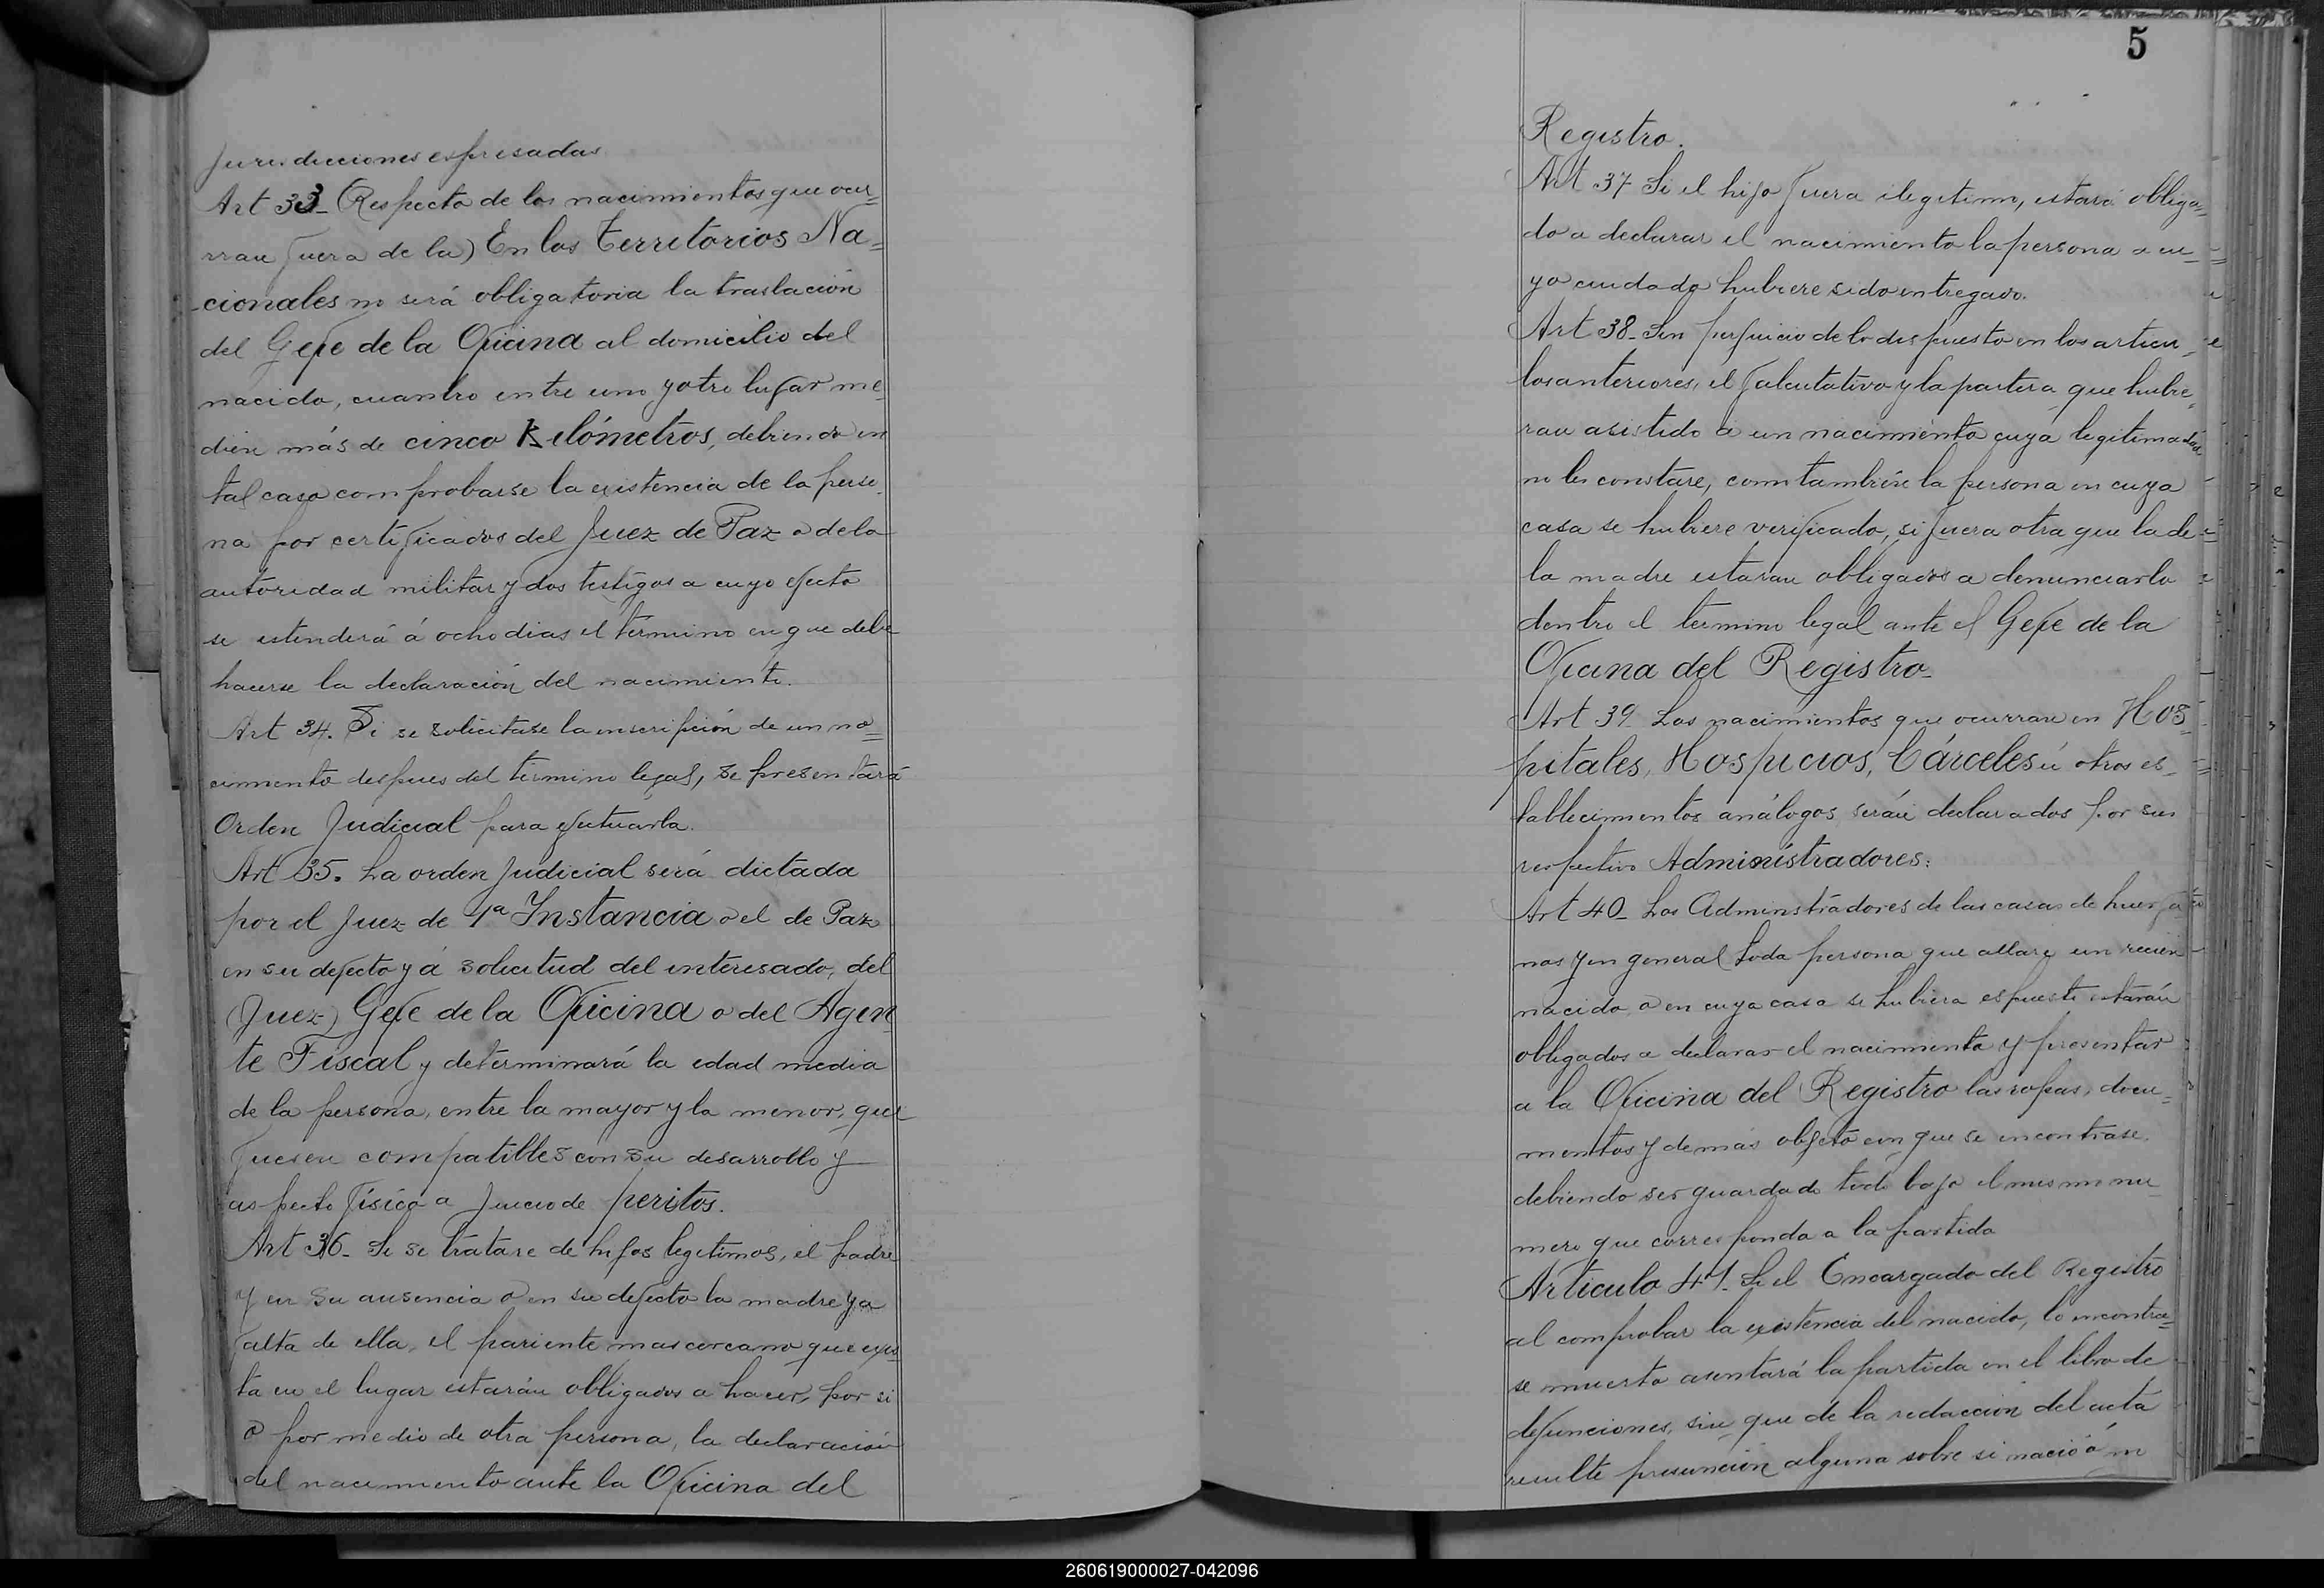 Jurisdicciones espresadas
Art 33_ (Respecto de los nacimientos que ocu=
rran fuera de la) En los Territorios Na=
cionales no será obligatoria la traslación
del Gefe de la Oficina al domicilio del
nacido, cuando entre uno y otro lugar me
dien más de cinco Kilómetros, debiendo en
tal caso comprobarse la existencia de la perso
na por certificados del Juez de Paz o de la
autoridad militar y dos testigos a cuyo efecto
se estenderá á ocho dias el término en que debe
hacerse la declaración del nacimiento.
Art 34. Si se solicitase la inscripción de un na=
cimiento despues del término legal, se presentará
Orden Judicial para efectuarla.
Art 35. La orden Judicial será dictada
por el Juez de 1ª Instancia o el de Paz
en su defecto y á solicitud del interesado, del
(Juez) Gefe de la Oficina o del Agen
te Fiscal y determinará la edad media
de la persona, entre la mayor y la menor, que
fuesen compatibles con su desarrollo y
aspecto físico a Juicio de peritos.
Art 36_ Si se tratare de hijos legitimos, el padre
y en su ausencia o en su defecto la madre y a
falta de ella, el pariente mas cercano que exis
ta en el lugar estarán obligados a hacer, por si
o por medio de otra persona, la declaración
del nacimiento ante la Oficina del
5
Registro.
Art 37 Si el hijo fuera ilegitimo, estará obliga=
do a declarar el nacimiento la persona a cu_
yo cuidado hubiere sido entregado.
Art 38_ Sin perjuicio de lo dispuesto en los articu_
los anteriores, el facultativo y la partera que hubie_
ran asistido a un nacimiento cuya legitimidad
no les constare, como tambien la persona en cuya
casa se hubiere verificado, si fuera otra que la de
la madre estaran obligados a denunciarlo
dentro el termino legal ante el Gefe de la
Oficina del Registro_
Art 39 Los nacimientos que ocurran en Hos_
pitales, Hospicios, Cárceles ú otros es_
tablecimientos análogos serán declarados por sus
respectivos Administradores.
Art 40_ Los Adminstradores de las casas de huerfa
nos y en general toda persona que allare un recien
nacido o en cuya casa se hubiera espuesto estarán
obligados a declarar el nacimiento y presentar
a la Oficina del Registro las ropas, docu_
mentos y demas objeto con que se encontrase.
debiendo ser guardado todo bajo el mismo nu_
mero que corresponda a la partida
Articulo 41_ Si el Encargado del Registro
al comprobar la existencia del nacido, lo encontra=
se muerto asentará la partida en el libro de
defunciones, sin que de la redacción del acta
resulte presunción alguna sobre si nació ó no
260619000027-042096